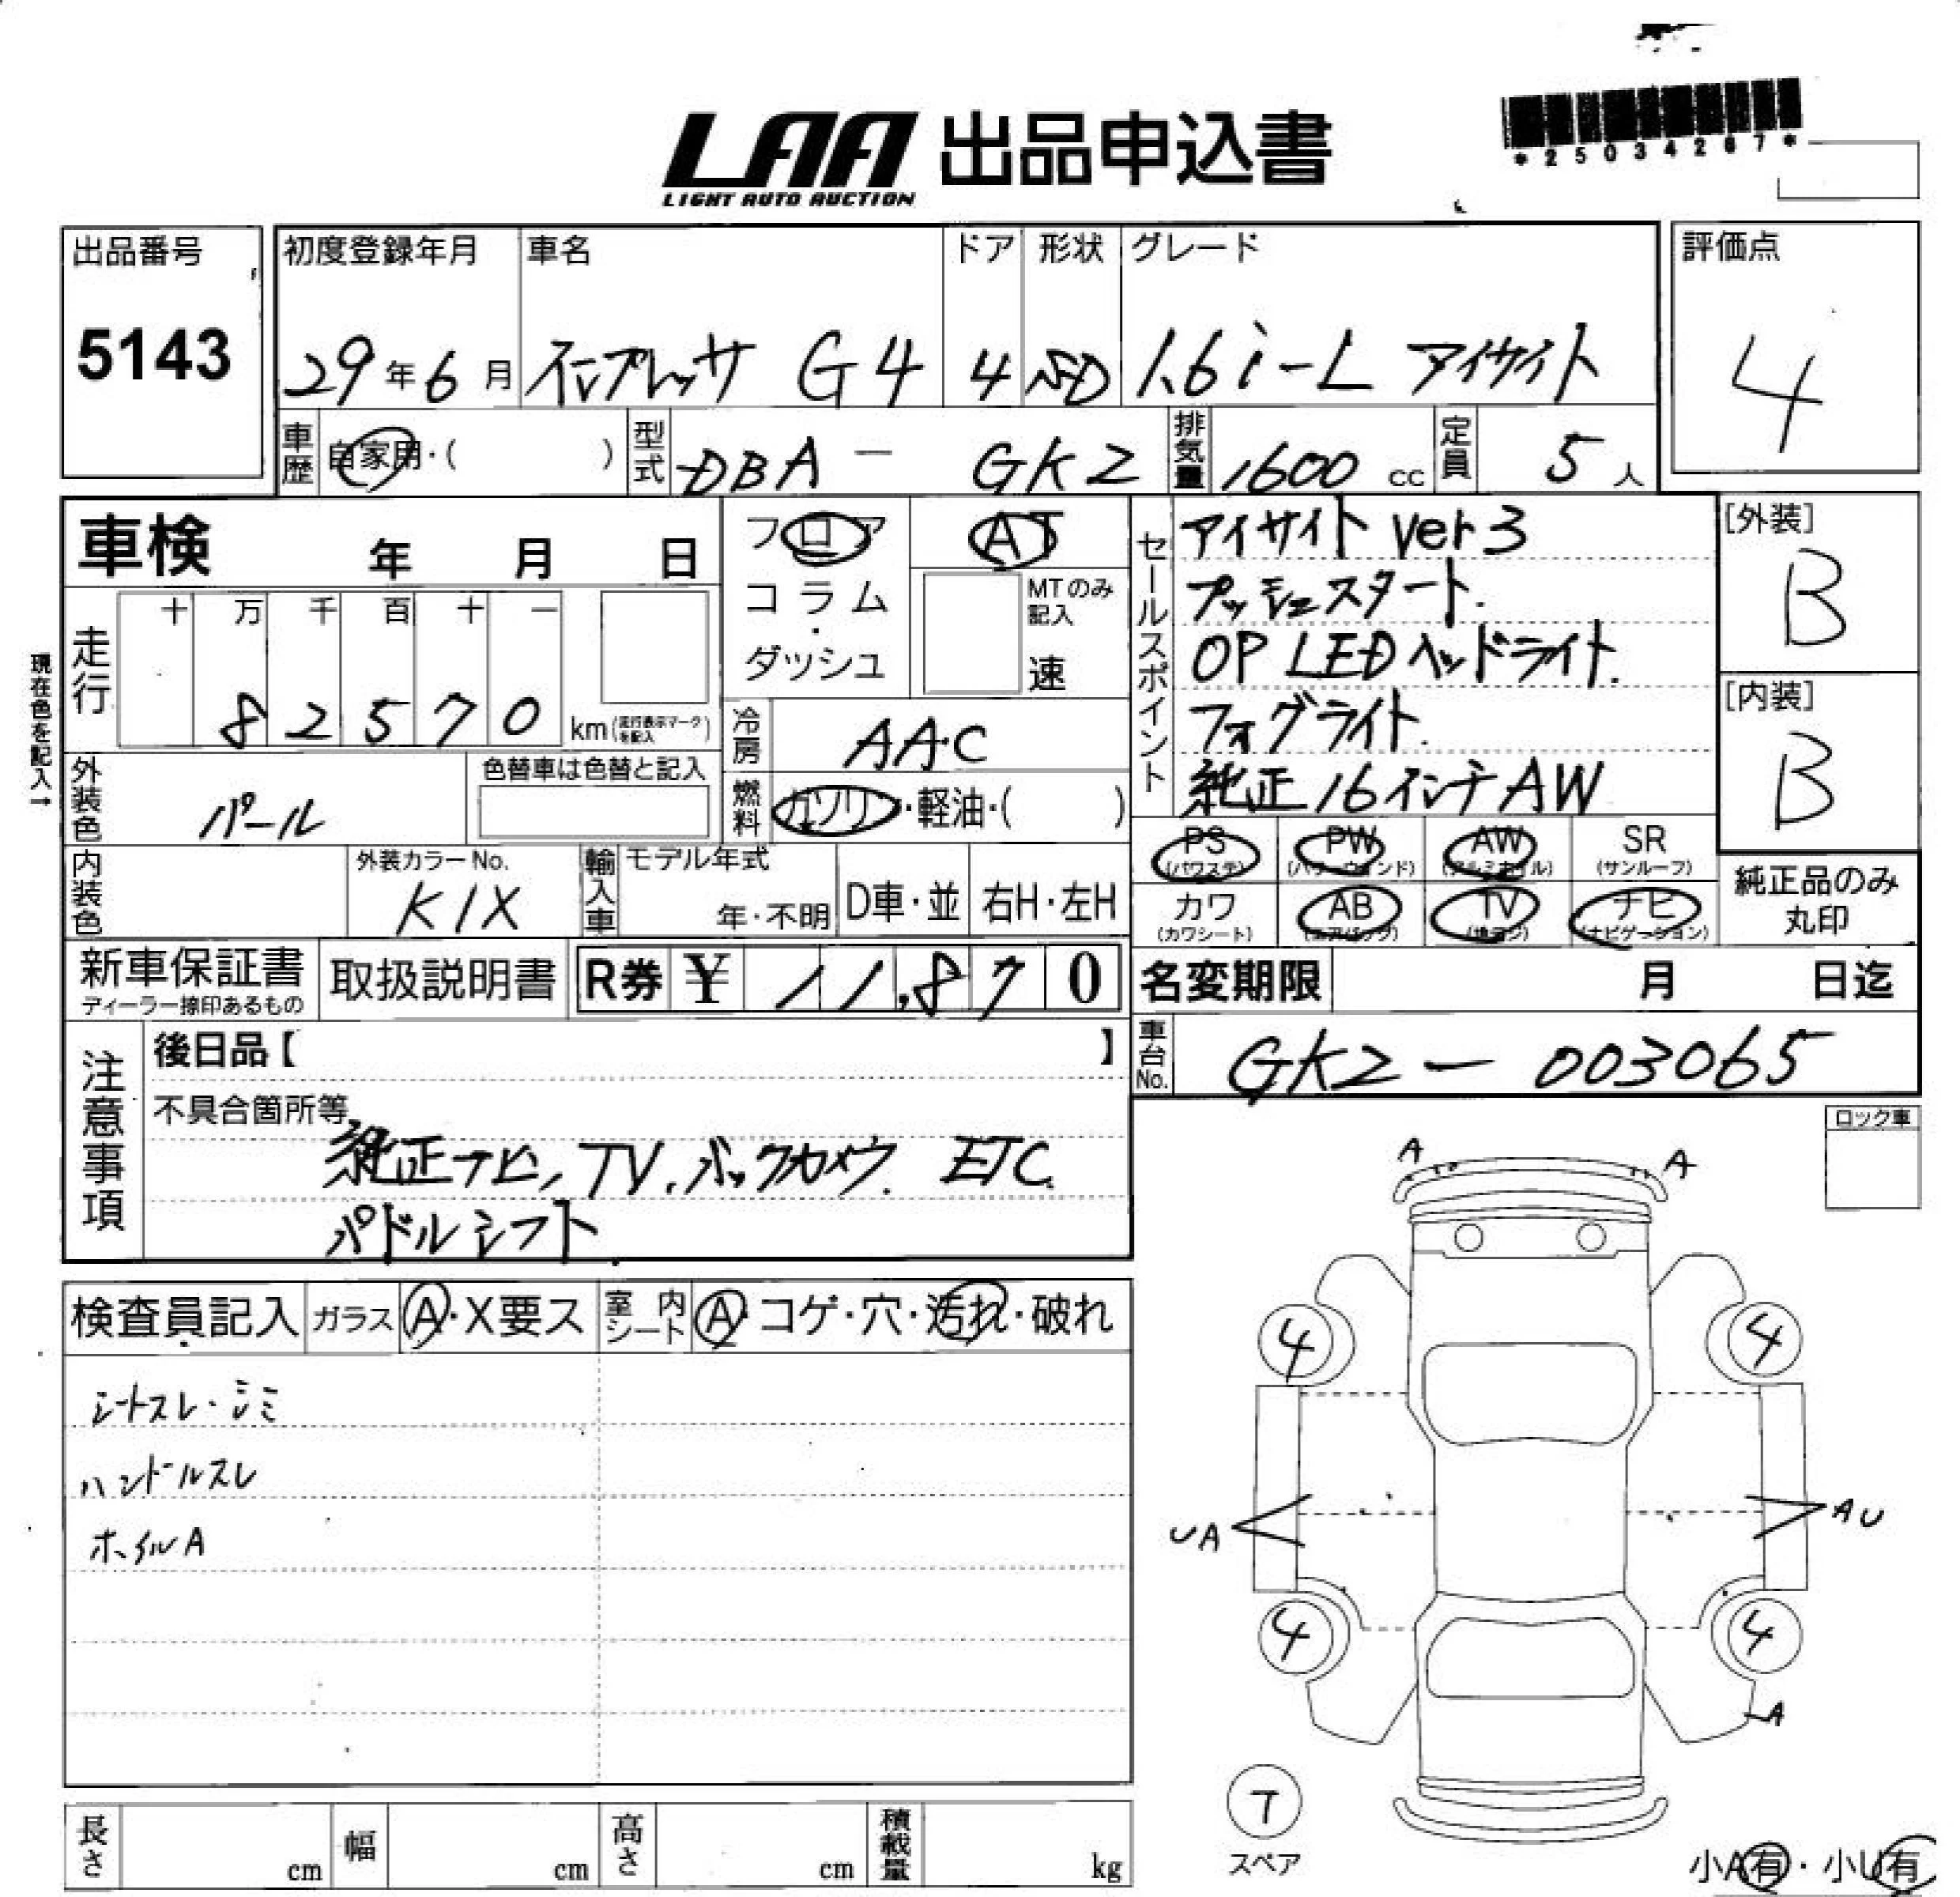 *25034287*
LAA 出品申込書
LIGHT AUTO AUCTION
出品番号 初度登録年月 車名 ドア 形状 グレード 評価点
5143 29年6月 インプレッサ G4 4 SD 1.6i-L アイサイト 4
車歴 自家用・( ) 型式 DBA - GK2 排気量 1600 cc 定員 5人
車検 年 月 日 フロア AT
コラム・ダッシュ MTのみ記入 速
セールスポイント
アイサイト ver3
プッシュスタート.
OP LEDヘッドライト.
フォグライト.
純正16インチAW
[外装] B
[内装] B
現在色を記入→
走行 十 万 千 百 十 一
8 2 5 7 0 km(走行表示マークを記入)
冷房 AAC
外装色 パール 色替車は色替と記入 燃料 ガソリン・軽油・( )
PS PW AW SR
(パワステ) (パワーウィンド) (アルミホイル) (サンルーフ)
カワ AB TV ナビ
(カワシート) (エアバッグ) (地デジ) (ナビゲーション)
純正品のみ丸印
内装色 外装カラーNo. K1X 輸入車 モデル年式 年・不明 D車・並 右H・左H
新車保証書 取扱説明書 R券 ¥ 11,870 名変期限 月 日迄
ディーラー捺印あるもの
車台No. GK2-003065
注意事項
後日品【 】
不具合箇所等
純正ナビ, TV, バックカメラ. ETC.
パドルシフト
ロック車
検査員記入 ガラス A・X要ス 室内シート A・コゲ・穴・汚れ・破れ
シートスレ・シミ
ハンドルスレ
ホイルA
A A
4 4
UA AU
4 4
A
T
スペア
小A有・小U有
長さ cm 幅 cm 高さ cm 積載量 kg